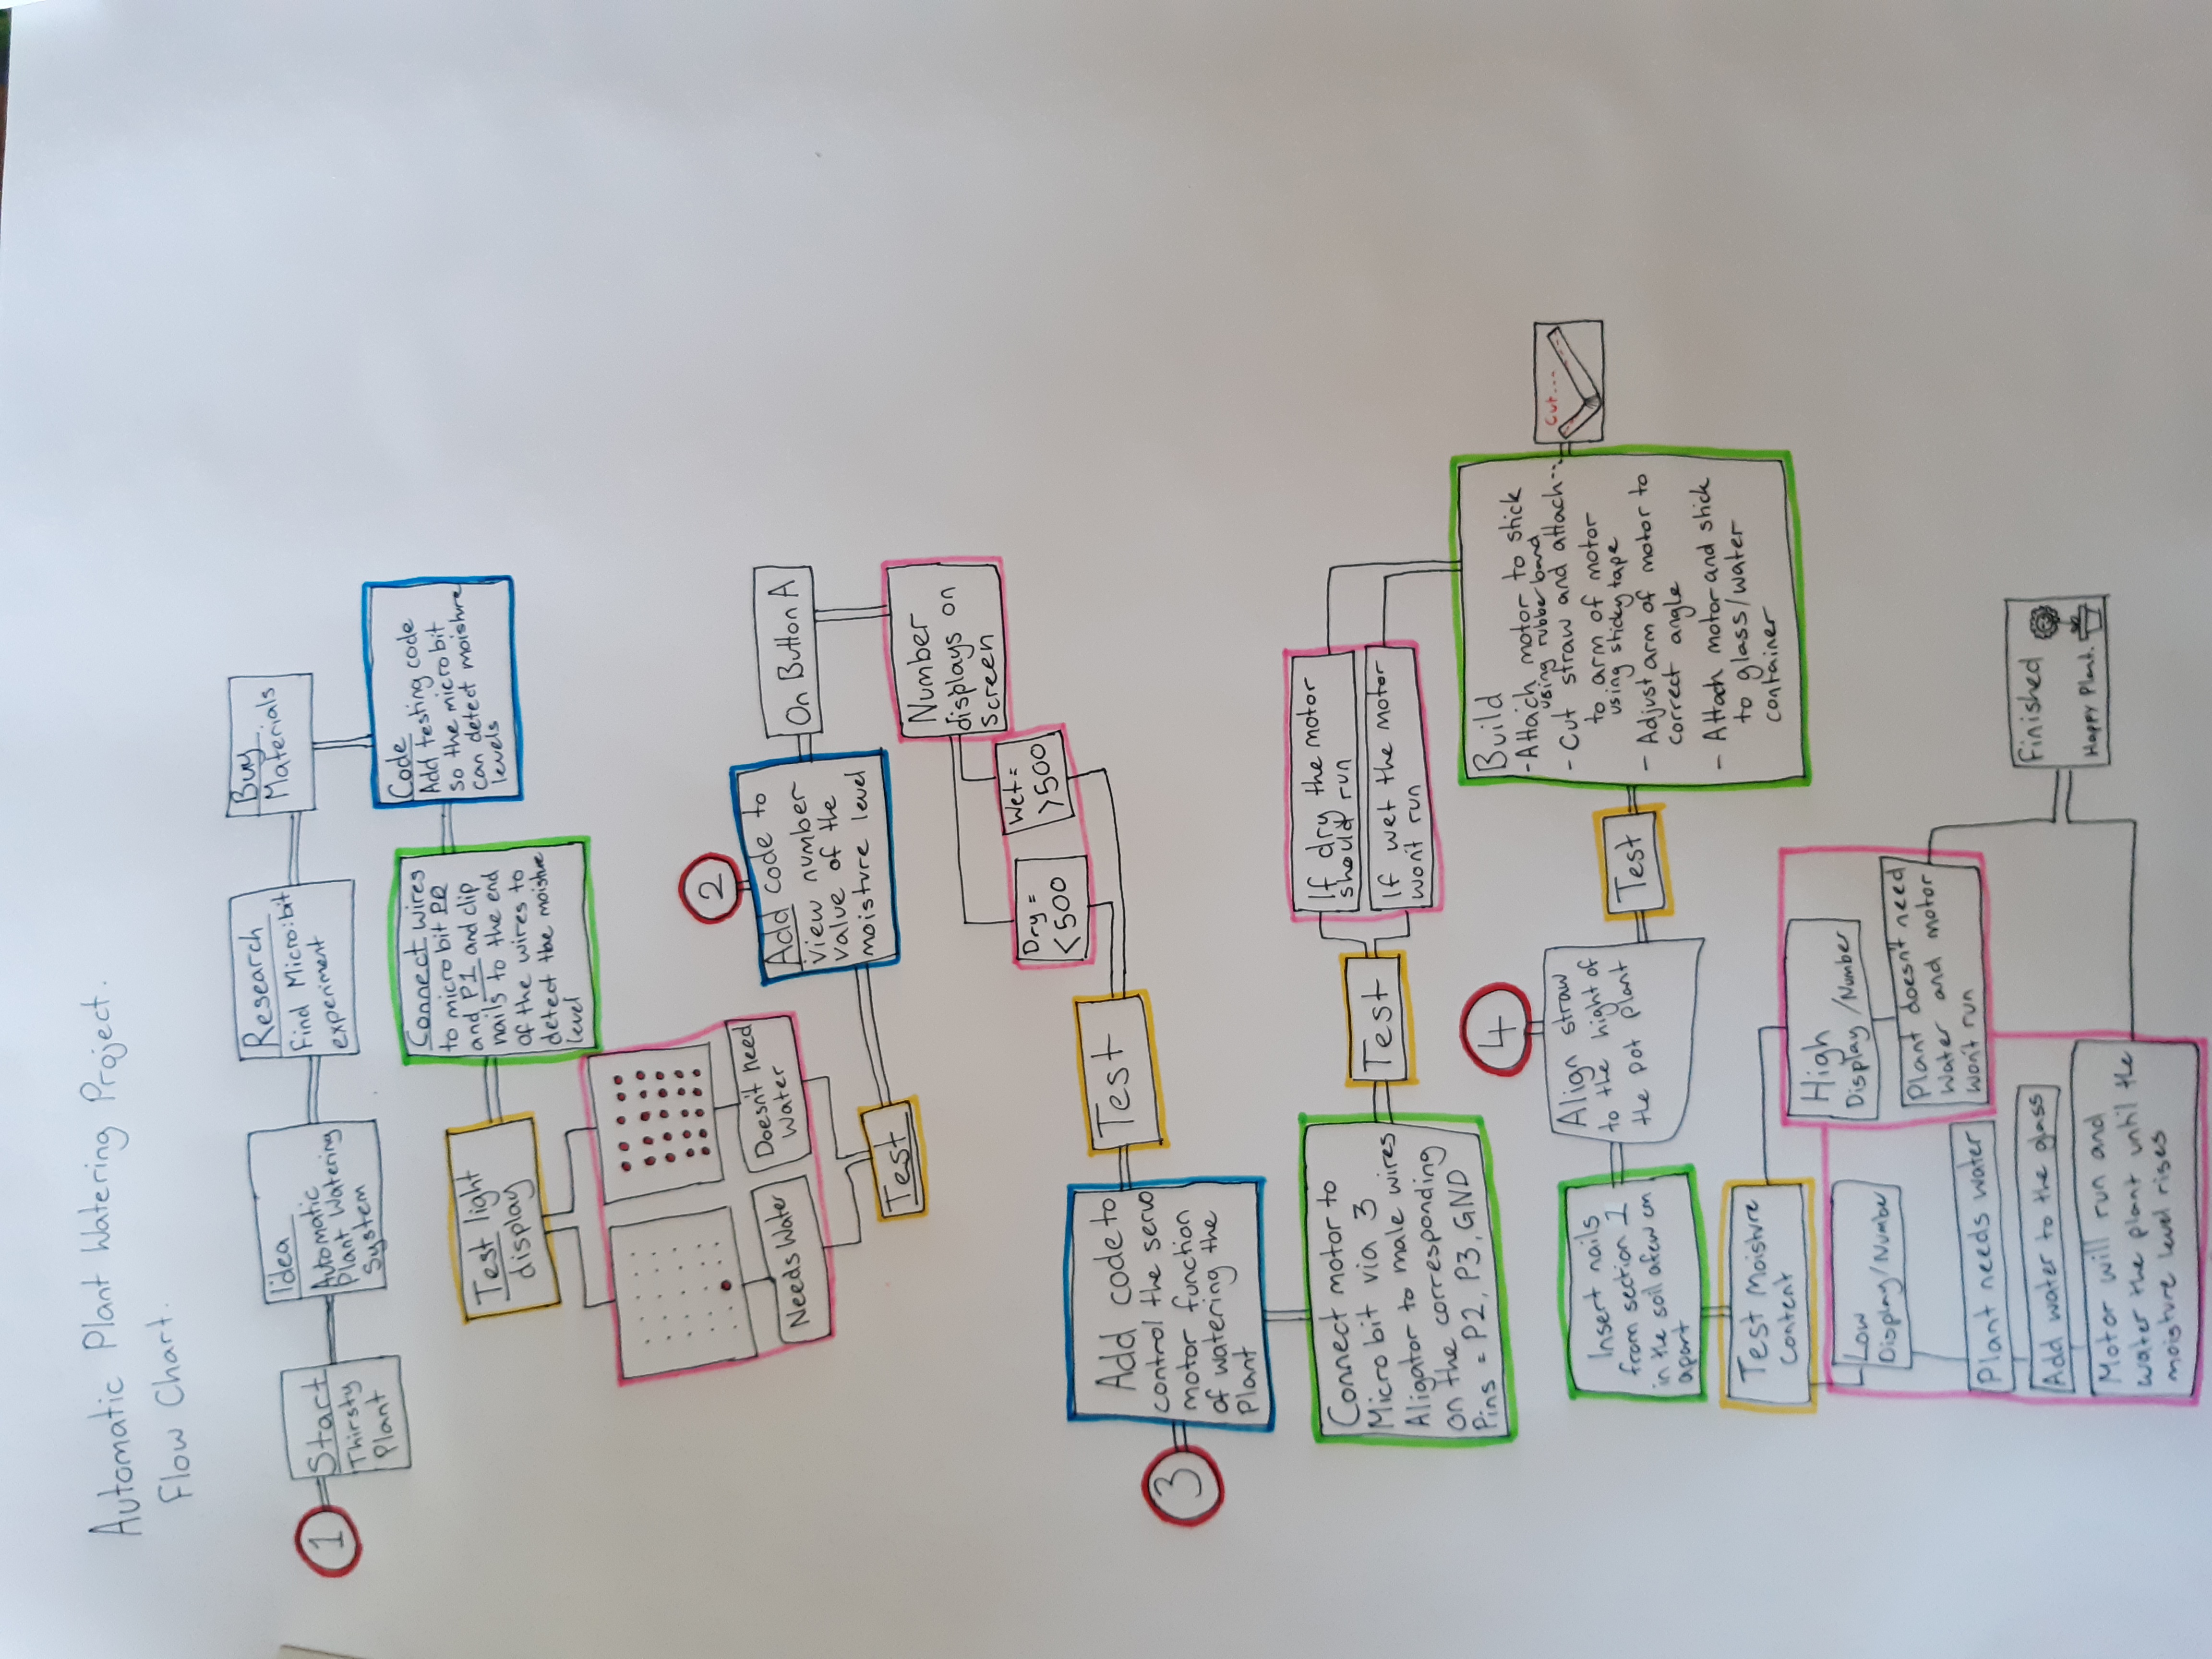 Automatic Plant Watering Project.
Flow Chart.
1
Start
Thirsty
Plant
Idea
Automatic
Plant Watering
System
Research
Find Micro:bit
experiment
Buy
Materials
Code
Add testing code
so the micro bit
can detect moisture
levels
Connect wires
to micro bit P0
and P1 and clip
nails to the end
of the wires to
detect the moisture
level
Test light
display
Needs Water
Doesn't need
Water
Test
2
Add code to
view number
value of the
moisture level
On Button A
Number
displays on
Screen
Dry =
<500
Wet =
>500
Test
3
Add code to
control the servo
motor function
of watering the
Plant
Connect motor to
Micro bit via 3
Aligator to male wires
on the corresponding
Pins = P2, P3, GND
Test
If dry the motor
should run
If wet the motor
won't run
Build
- Attach motor to stick
using rubber band
- Cut straw and attach
to arm of motor
using sticky tape
- Adjust arm of motor to
correct angle
- Attach motor and stick
to glass/water
container
Cut...
Test
4
Align straw
to the hight of
the pot plant
Insert nails
from section 1
in the soil a few cm
apart
Test Moisture
Content
Low
Display/Number
Plant needs water
Add water to the glass
Motor will run and
water the plant until the
moisture level rises
High
Display/Number
Plant doesn't need
Water and motor
won't run
Finished
Happy Plant.